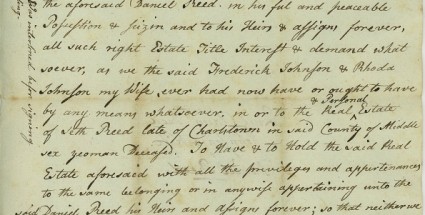 the aforesaid Daniel Reed. in his full and peaceable
Possesstion & seizin and to his Heirs & assigns forever,
all such right Estate Title Interest & demand what
soever, as we the said Frederick Johnson & Rhoda
Johnson my Wife ever had now have or ought to have
& Personal
by any means whatsoever, in or to the Real ^ Estate
of Seth Reed late of Charlstown in said County of Middle
sex yeoman Deceased. To Have & to Hold the said Real
Estate aforesaid with all the privileges and appertenances
to the same belonging or in anywise appertaining unto the
said Daniel Reed his Heirs and assigns forever; so that neither we
interlined before signing